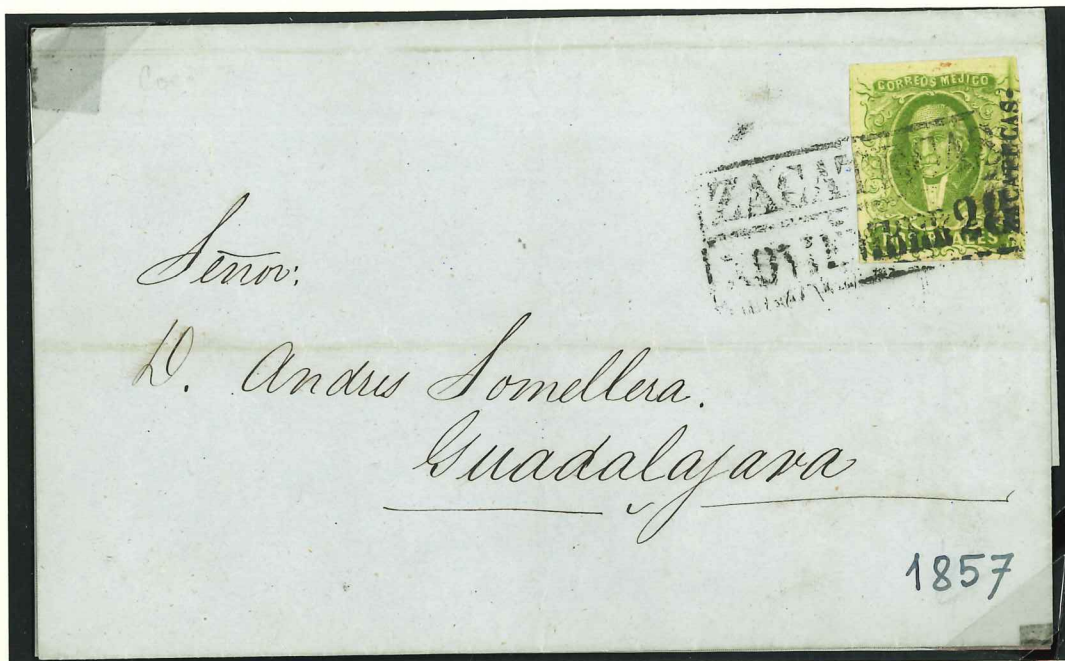 CORREOS MEJICO
ZACATECAS
28
Señor:
D. Andres Somellera.
Guadalajara
1857